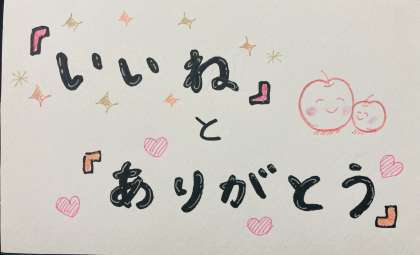 『いいね』
と
『ありがとう』